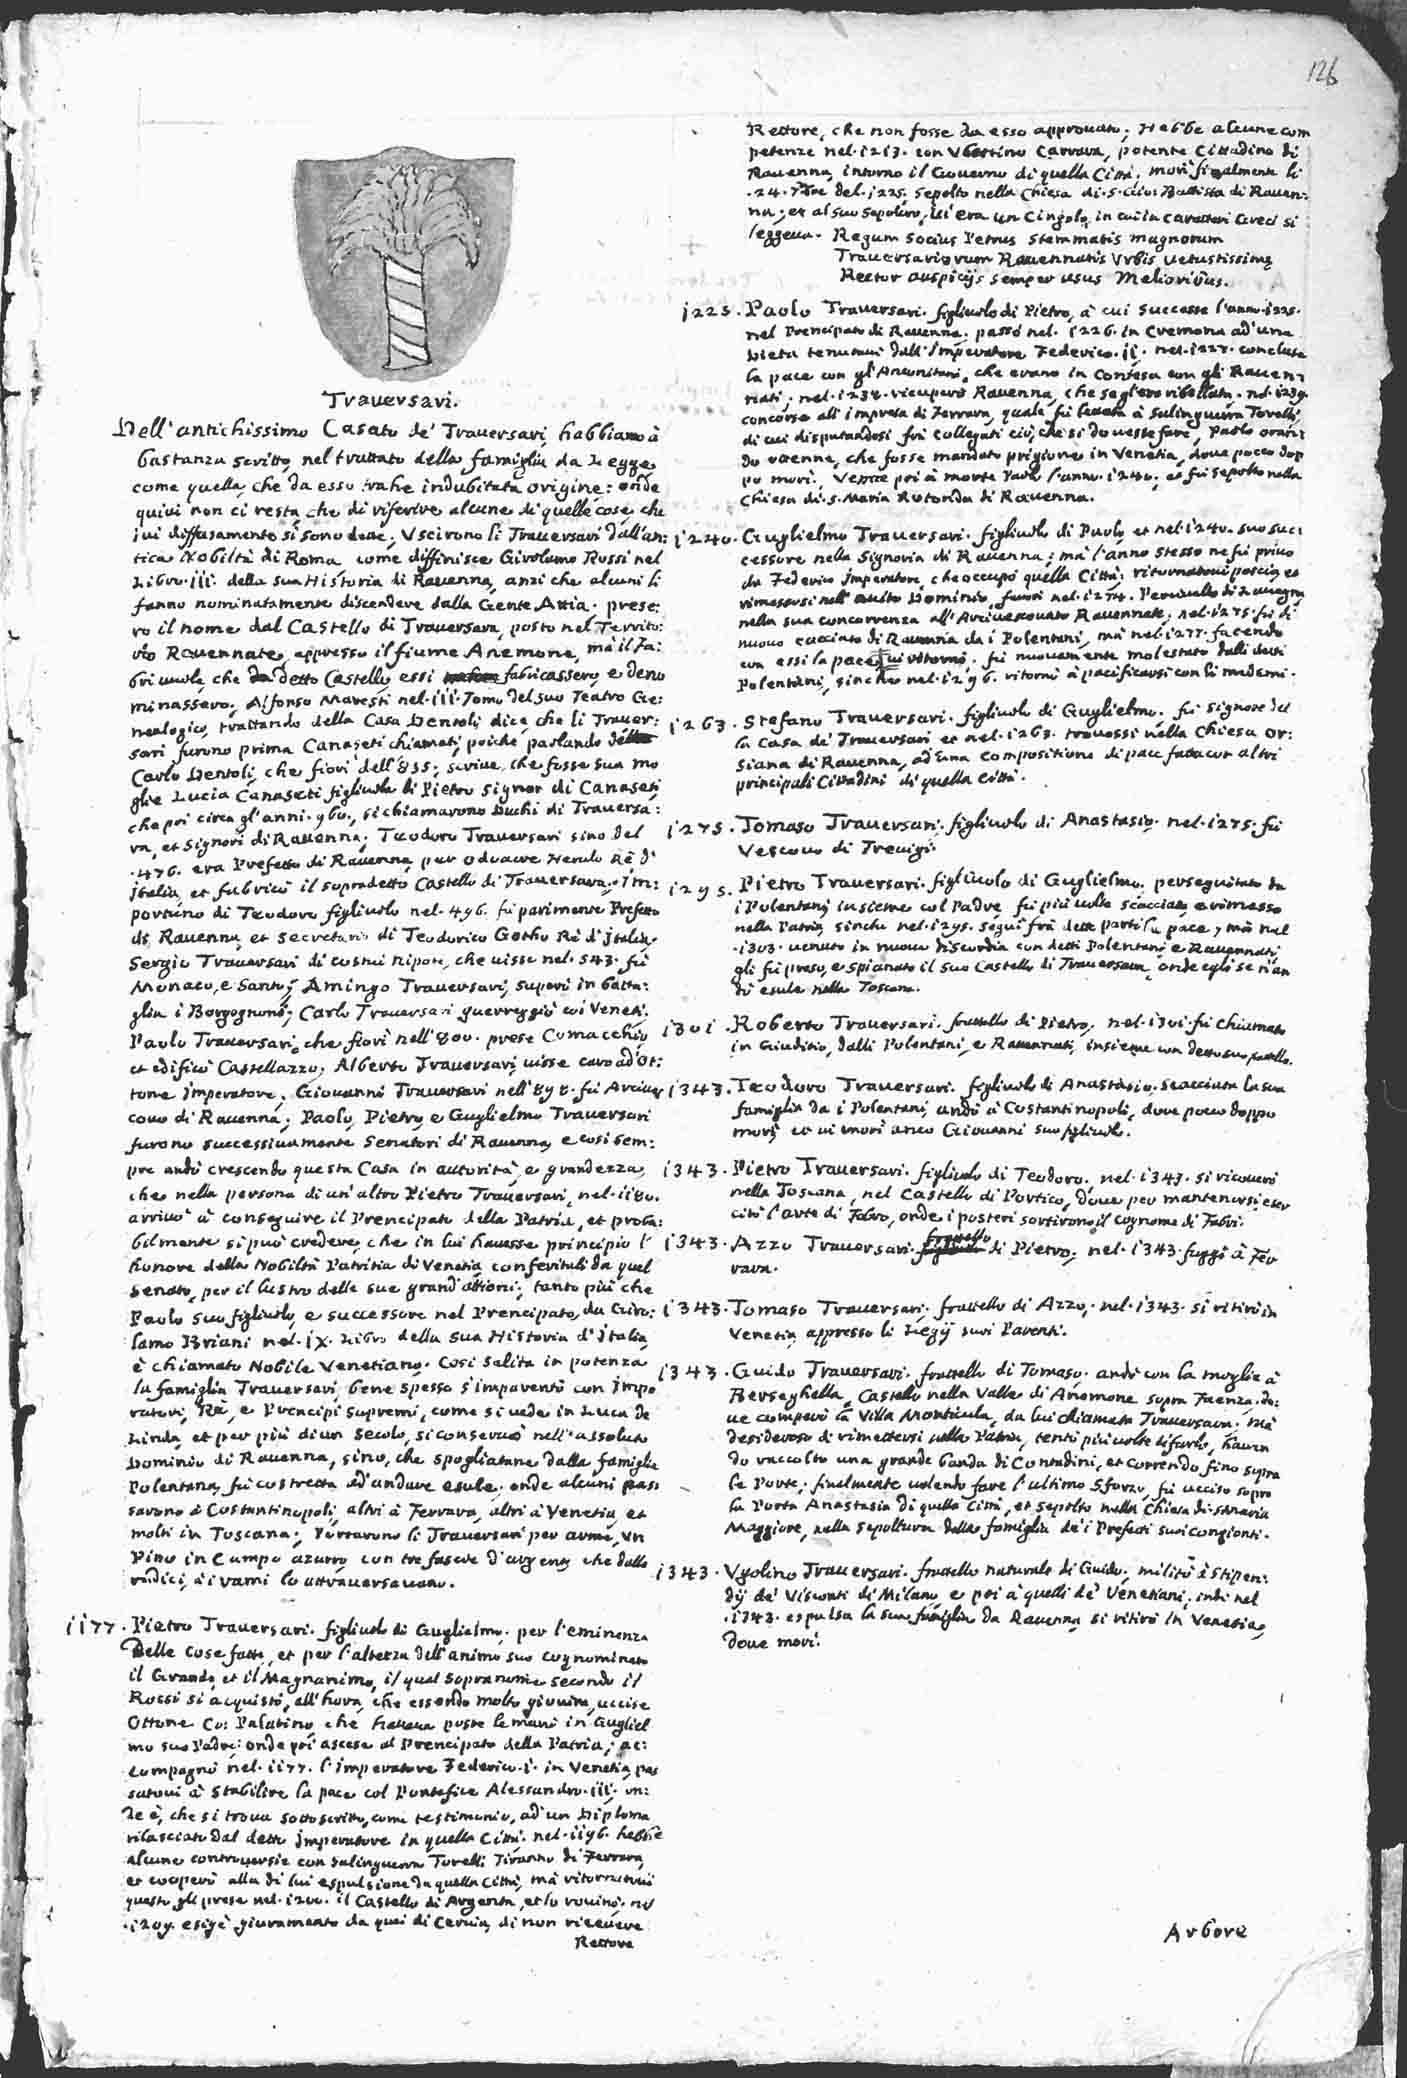 126
Traversari.
Dell'antichissimo Casato de' Traversari, habbiamo à
bastanza scritto, nel trattato della famiglia da Legge,
come quella, che da esso trahe indubitata origine: onde
quivi non ci resta, che di riferire alcune di quelle cose, che
ivi diffusamente si sono dette. Uscirono li Traversari dall'an:
tica Nobiltà di Roma, come diffinisce Girolamo Rossi nel
Libro .iii. della sua Historia di Ravenna, anzi che alcuni li
fanno nominatamente discendere dalla Gente Attia. prese:
ro il nome dal Castello di Traversara, posto nel Territo:
rio Ravennate, appresso il fiume Anemone, mà il Fa:
bri vuole, che da detto Castello, essi fabricassero, e deno
minassero. Alfonso Maresti nel .iii. Tomo del suo Teatro Ge:
nealogico, trattando della Casa Bentoli dice, che li Traver:
sari furono prima Canaseti chiamati, poiche parlando
Carlo Bentoli, che fiorì dell'835, scrive, che fosse sua mo
glie Lucia Canaseti figliuola di Pietro Signor di Canaseti,
che poi circa gl'anni .960., si chiamarono Duchi di Traversa:
ra, et Signori di Ravenna. Teodoro Traversari sino del
.476. era Prefetto di Ravenna, per Odoacre Herulo Rè d'
Italia, et fabricò il sopradetto Castello di Traversara. Im:
portuno di Teodoro figliuolo nel .496. fù parimente Prefetto
di Ravenna, et Secretario di Teodorico Gotho Rè d'Italia.
Sergio Traversari di costui nipote, che visse nel .543. fù
Monaco, e Santo; Amingo Traversari, superò in batta:
glia i Borgognoni; Carlo Traversari guerreggiò coi Veneti.
Paolo Traversari, che fiorì nell'800. prese Comacchio
et edificò Castellazzo; Alberto Traversari, visse caro ad'Ot:
tone Imperatore; Giovanni Traversari nell'898. fù Arcives
covo di Ravenna; Paolo, Pietro, e Guglielmo Traversari
furono successivamente Senatori di Ravenna, e così sem:
pre andò crescendo questa Casa in autorità, e grandezza,
che nella persona di un'altro Pietro Traversari, nel .1180.
arrivò à conseguire il Prencipato della Patria, et proba:
bilmente si può credere, che in lui havesse principio l'
honore della Nobiltà Patritia di Venetia, conferitali da quel
Senato, per il lustro delle sue grand'attioni; tanto più che
Paolo suo figliuolo, e successore nel Prencipato, da Giro:
lamo Briani nel .ix. Libro della sua Historia d'Italia,
è chiamato Nobile Venetiano. Così salita in potenza
la famiglia Traversari, bene spesso s'imparentò con Impe
ratori, Rè, e Prencipi supremi, come si vede in Luca de
Linda, et per più di un secolo, si conservò nell'assoluto
Dominio di Ravenna, sino, che spogliatane dalla famiglia
Polentana, fù costretta ad'andare esule; onde alcuni pas
sarono à Costantinopoli, altri à Ferrara, altri à Venetia, et
molti in Toscana; Portarono li Traversari per arme, un
Pino in Campo azurro, con tre fascie d'argento, che dalle
radici, à i rami lo attraversavano.
1177. Pietro Traversari. figliuolo di Guglielmo. per l'eminenza
delle cose fatte, et per l'altezza dell'animo suo cognominato
il Grande, et il Magnanimo, il qual sopranome secondo il
Rossi si acquistò, all'hora, che essendo molto giovine, uccise
Ottone Co: Palatino, che haveva poste le mani in Gugliel
mo suo Padre: onde poi ascese al Prencipato della Patria; ac:
compagnò nel .1177. l'Imperatore Federico .i. in Venetia, pas
satovi à stabilire la pace col Pontefice Alessandro .iii. on:
de è, che si trova sottoscritto, come testimonio, ad'un Diploma
rilasciato dal detto Imperatore in quella Città. nel .1196. hebbe
alcune controversie con Salinguerra Torelli Tiranno di Ferrara,
et cooperò alla di lui espulsione da quella Città, mà ritornatovi
questo, gli prese nel .1200. il Castello di Argenta, et lo rovinò. nel
.1209. esigè giuramento da quei di Cervia, di non ricevere
Rettore
Rettore, che non fosse da esso approvato; Hebbe alcune com
petenze nel .1213. con Ubertino Carrara, potente Cittadino di
Ravenna, intorno il Governo di quella Città. morì finalmente li
.24. 7bre del .1225. sepolto nella Chiesa di .S. Gio: Battista di Raven:
na; et al suo sepolcro, vi era un Cingolo, in cui in Caratteri Greci si
leggeva. Regum socius Petrus stemmatis magnorum
Traversariorum Ravennatis Urbis vetustissimę
Rector auspicijs semper usus Melioribus.
1225. Paolo Traversari. figliuolo di Pietro, à cui successe l'anno .1225.
nel Prencipato di Ravenna. passò nel .1226. in Cremona ad'una
Dieta tenutavi dall'Imperatore Federico .ii. nel .1227. concluse
la pace con gl'Anconitani, che erano in contesa con gli Raven:
nati. nel .1238. ricuperò Ravenna, che segli ero ribellata. nel .1239.
concorse all'impresa di Ferrara, quale fù levata à Salinguerra Torelli,
di cui disputandosi frà collegati ciò, che si dovesse fare, Paolo oran:
do ottenne, che fosse mandato prigione in Venetia, dove poco dop
po morì. Venne poi à morte Paolo l'anno .1240. et fù sepolto nella
Chiesa di .S. Maria Rotonda di Ravenna.
1240. Guglielmo Traversari. figliuolo di Paolo, et nel .1240. suo suc:
cessore nella Signoria di Ravenna; mà l'anno stesso ne fù privo
da Federico Imperatore, che occupò quella Città. ritornatovi poscia, et
rimessosi nell'avito Dominio, favorì nel .1274. Percivalle di Lavagna
nella sua concorrenza all'Arcivescovato Ravennate. nel .1275. fù di
nuovo cacciato di Ravenna da i Polentani, mà nel .1277. facendo
con essi la pace, vi ritornò. fù nuovamente molestato dalli detti
Polentani, sinche nel .1296. ritornò à pacificarsi con li medemi.
1263. Stefano Traversari. figliuolo di Guglielmo. fù Signore del
la Casa de' Traversari et nel .1263. trovossi nella Chiesa Or:
siana di Ravenna, ad'una compositione di pace fatta con altri
principali Cittadini di quella Città.
1275. Tomaso Traversari. figliuolo di Anastasio. nel .1275. fù
Vescovo di Trevigi.
1295. Pietro Traversari. figliuolo di Guglielmo. perseguitato da
i Polentani, insieme col Padre, fù più volte scacciato, e rimesso
nella Patria, sinche nel .1295. seguì frà dette parti la pace, mà nel
.1303. venuto in nuova discordia con detti Polentani, e Ravennati,
gli fù preso, e spianato il suo Castello di Traversara, onde egli se n'an
dò esule nella Toscana.
1301. Roberto Traversari. frattello di Pietro. nel .1301. fù chiamato
in Giuditio, dalli Polentani, e Ravennati, insieme con detto suo fratello.
1343. Teodoro Traversari. figliuolo di Anastasio. scacciata la sua
famiglia da i Polentani, andò à Costantinopoli, dove poco doppo
morì, et vi morì anco Giovanni suo figliuolo.
1343. Pietro Traversari. figliuolo di Teodoro. nel .1343. si ricoverò
nella Toscana, nel Castello di Portico, dove per mantenersi eser
citò l'arte di Fabro, onde i posteri sortirono il cognome di Fabri.
1343. Azzo Traversari. frattello di Pietro. nel .1343. fuggì à Fer
rara.
1343. Tomaso Traversari. frattello di Azzo. nel .1343. si ritirò in
Venetia, appresso li Legij suoi Parenti.
1343. Guido Traversari. frattello di Tomaso. andò con la moglie à
Berseghella, Castello nella Valle di Anemone, sopra Faenza. do:
ve comperò la Villa Monticula, da lui chiamata Traversara. mà
desideroso di rimettersi nella Patria, tentò più volte di farlo, haven
do raccolto una grande banda di Contadini, et correndo fino sopra
le Porte. finalmente volendo fare l'ultimo sforzo, fù ucciso sopra
la Porta Anastasia di quella Città, et sepolto nella Chiesa di S. Maria
Maggiore, nella sepoltura della famiglia de' i Prefetti suoi congionti.
1343. Ugolino Traversari. frattello naturale di Guido. militò à stipen:
dij de' Visconti di Milano, e poi à quelli de' Venetiani; indi nel
.1343. espulsa la sua famiglia da Ravenna, si ritirò in Venetia,
dove morì.
Arbore